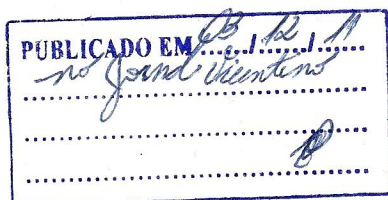 PUBLICADO EM 03/12/11
no Jornal Vicentino